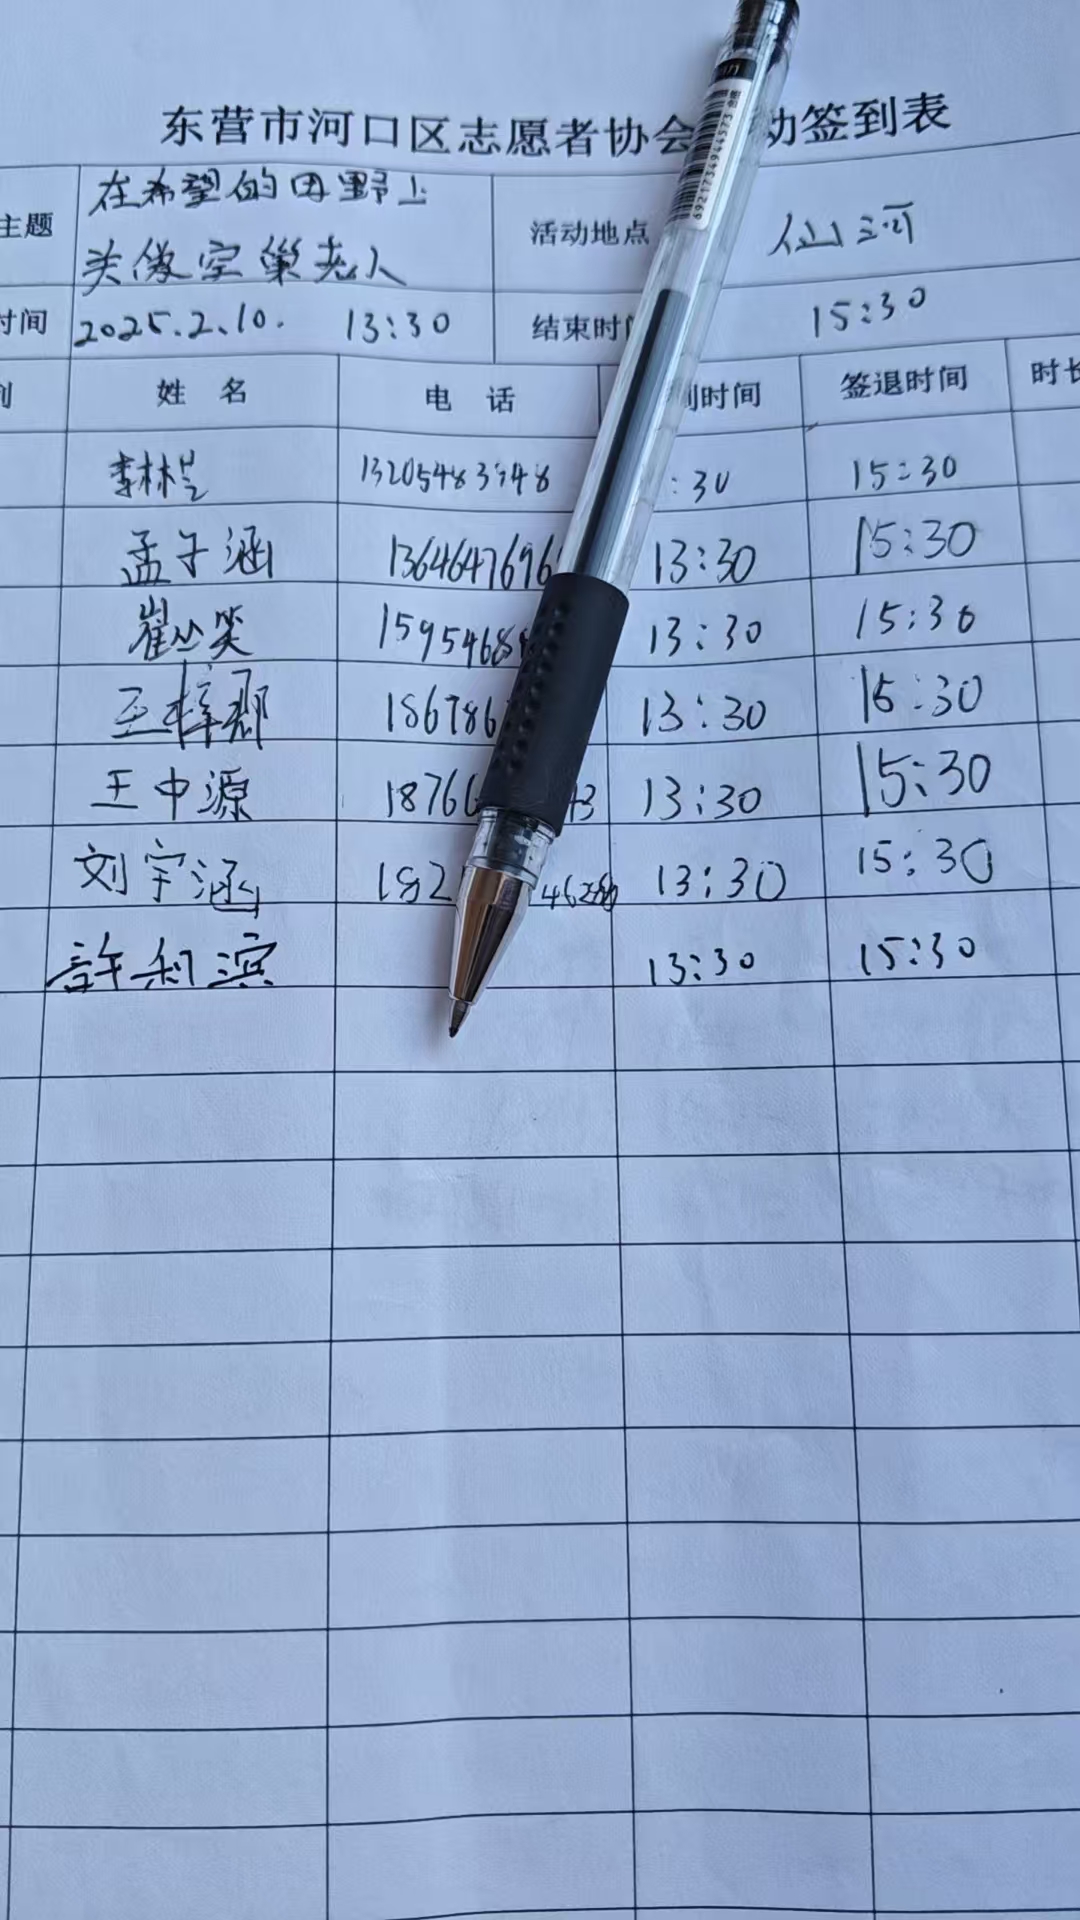 东营市河口区志愿者协会 动签到表
主题 在希望的田野上 活动地点 仙河
关傲空巢老人
时间 2025.2.10. 13:30 结束时 15:30
别 姓 名 电 话 到时间 签退时间 时长
1320548 :30 15:30
孟子涵 1364647696 13:30 15:30
崔丛笑 1595468 13:30 15:30
王梓郡 186786 13:30 15:30
王中源 1876 43 13:30 15:30
刘宇涵 182 13:30 15:30
許利滨 13:30 15:30